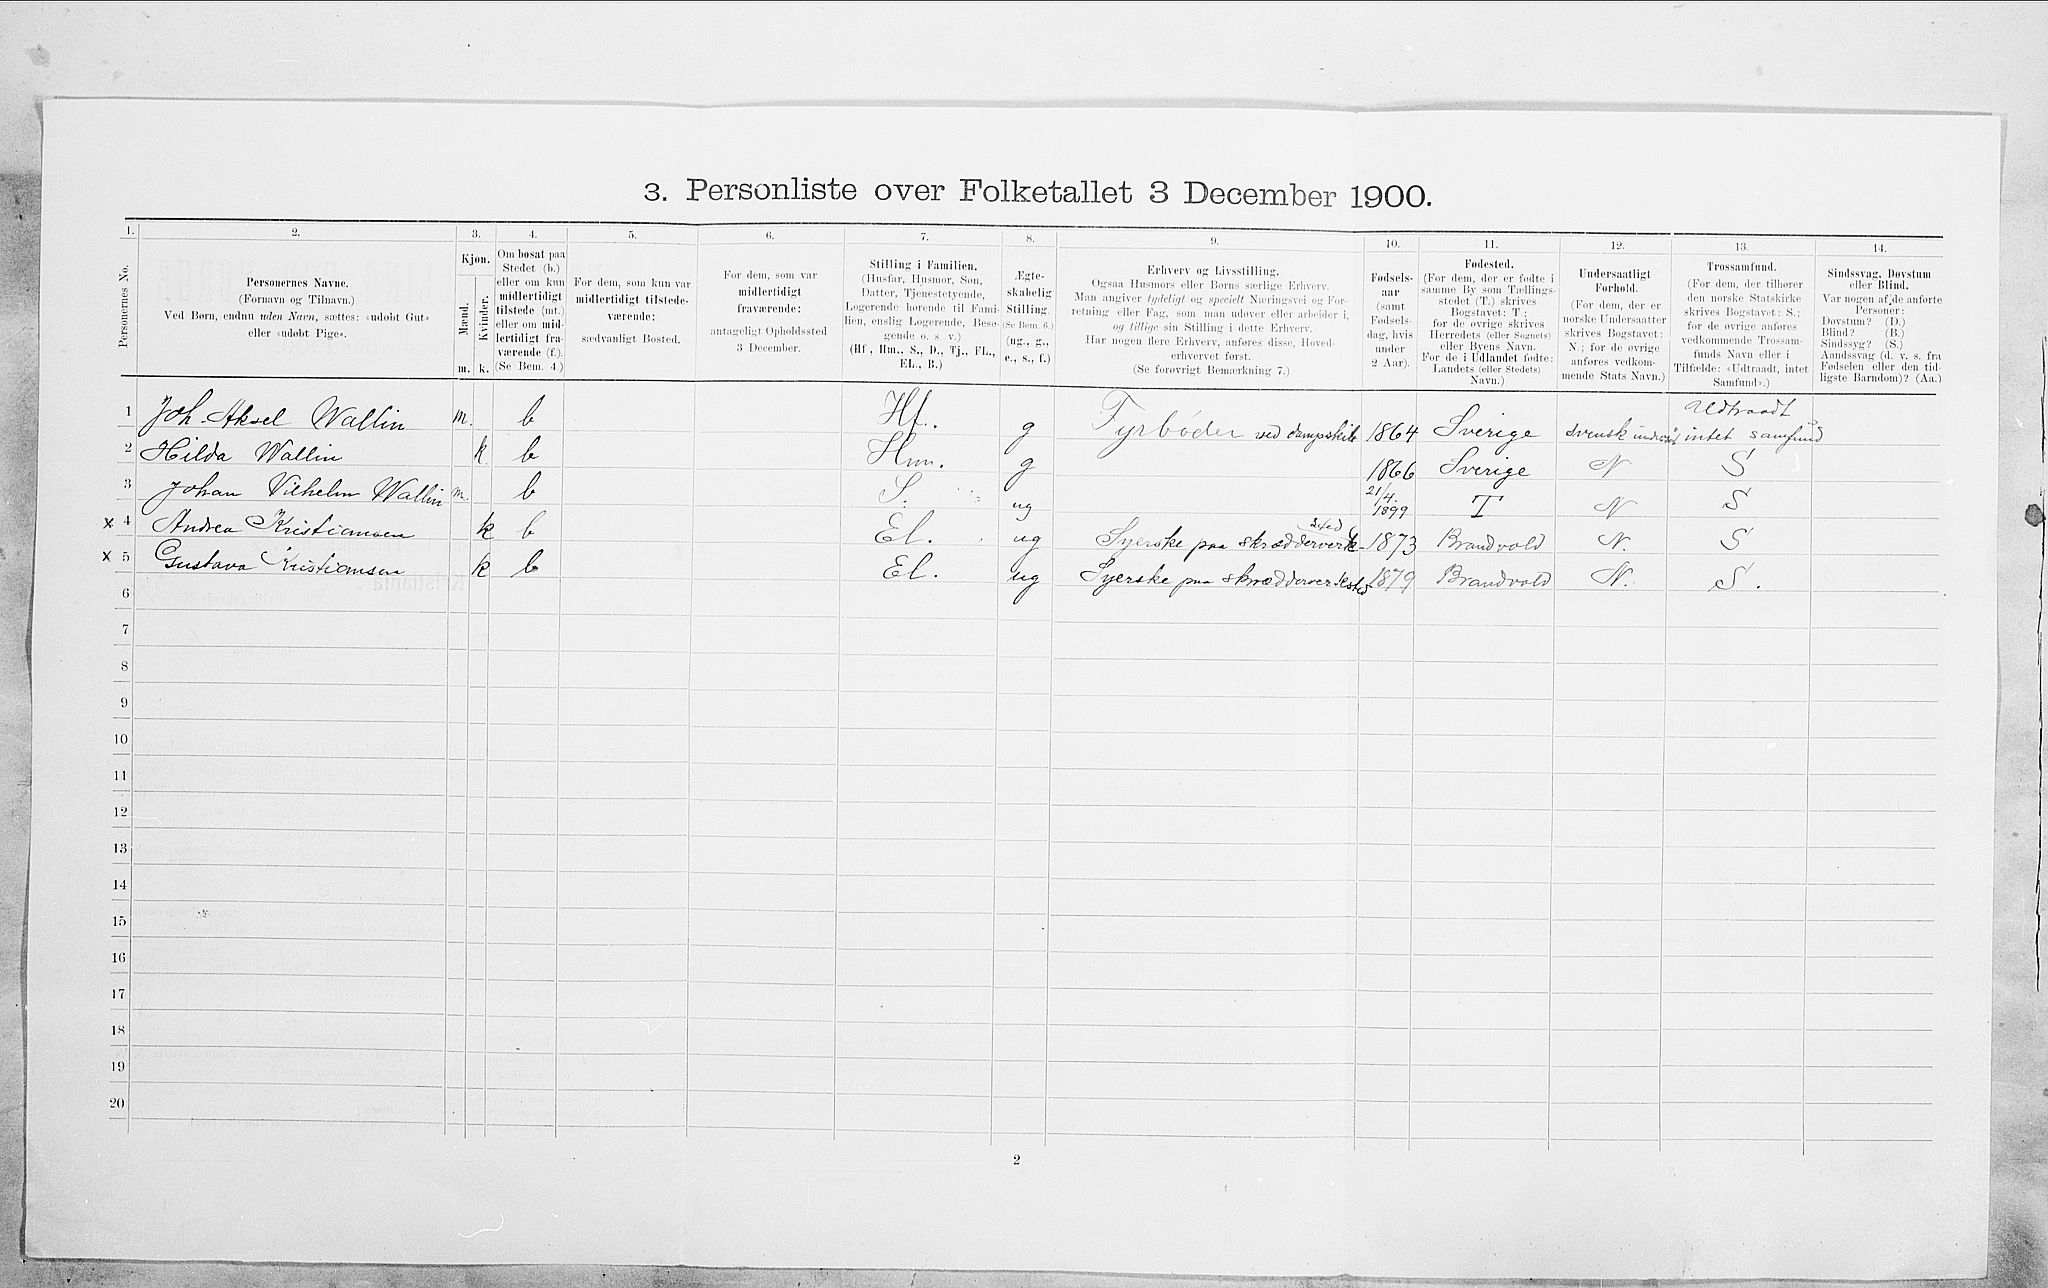 3. Personliste over Folketallet 3 December 1900.
1. 2. 3. 4. 5. 6. 7. 8. 9. 10. 11. 12. 13. 14.
Personernes No.
Personernes Navne.
(Fornavn og Tilnavn.)
Ved Børn, endnu uden Navn, sættes: «udøbt Gut»
eller «udøbt Pige».
Kjøn.
Mænd.
Kvinder.
m. k.
Om bosat paa
Stedet (b.)
eller om kun
midlertidigt
tilstede (mt.)
eller om mid-
lertidigt fra-
værende (f.).
(Se Bem. 4.)
For dem, som kun var
midlertidigt tilstede-
værende:
sædvanligt Bosted.
For dem, som var
midlertidigt
fraværende:
antageligt Opholdssted
3 December.
Stilling i Familien.
(Husfar, Husmor, Søn,
Datter, Tjenestetyende,
Logerende hørende til Fami-
lien, enslig Logerende, Besø-
gende o. s. v.)
(Hf., Hm., S., D., Tj., FL.,
EL., B.)
Ægte-
skabelig
Stilling.
(Se Bem. 6.)
(ug., g.,
e., s., f.)
Erhverv og Livsstilling.
Ogsaa Husmors eller Børns særlige Erhverv.
Man angiver tydeligt og specielt Næringsvei og For-
retning eller Fag, som man udøver eller arbeider i,
og tillige sin Stilling i dette Erhverv.
Har nogen flere Erhverv, anføres disse, Hoved-
erhvervet først.
(Se forøvrigt Bemærkning 7.)
Fødsels-
aar
(samt
Fødsels-
dag, hvis
under
2 Aar).
Fødested.
(For dem, der er fødte i
samme By som Tællings-
stedet (T.) skrives
Bogstavet: T.;
for de øvrige skrives
Herredets (eller Sognets)
eller Byens Navn.
For de i Udlandet fødte:
Landets (eller Stedets)
Navn.)
Undersaatligt
Forhold.
(For dem, der er
norske Undersaatter
skrives Bogstavet:
N.; for de øvrige
anføres vedkom-
mende Stats Navn.)
Trossamfund.
(For dem, der tilhører
den norske Statskirke
skrives Bogstavet: S.;
for de øvrige anføres
vedkommende Trossam-
funds Navn eller i
Tilfælde: «Udtraadt, intet
Samfund».)
Sindssvag, Døvstum
eller Blind.
Var nogen af de anførte
Personer:
Døvstum? (D.)
Blind? (B.)
Sindssyg? (S.)
Aandssvag (d. v. s. fra
Fødselen eller den tid-
ligste Barndom)? (Aa.)
1 Joh. Aksel Wallin m. b Hf. g Fyrbøder ved dampskib 1864 Sverige svensk Udtraadt
intet samfund
2 Hilda Wallin k b Hm. g 1866 Sverige N S
3 Johan Vilhelm Wallin m. b S. ug 21/4. 1899 T N S
x 4 Andrea Kristiansen k b El. ug Syerske paa skrædderverk-
sted 1873 Brandvold N. S
x 5 Gustava Kristiansen k b El. ug Syerske paa skrædderverksted 1879 Brandvold N. S.
6
7
8
9
10
11
12
13
14
15
16
17
18
19
20
2